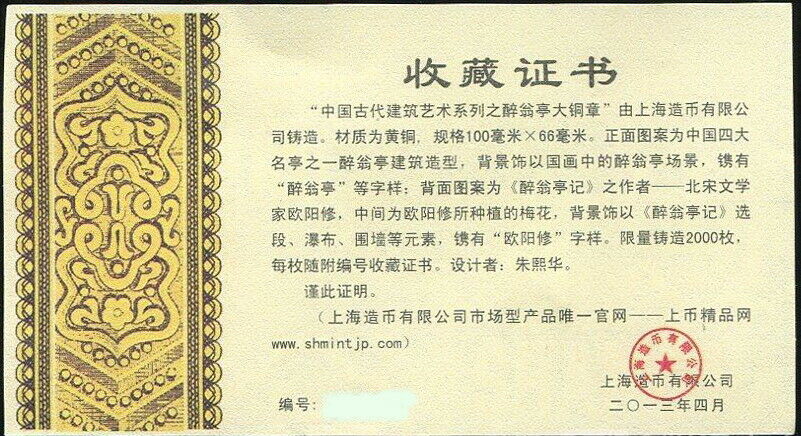 收藏证书
“中国古代建筑艺术系列之醉翁亭大铜章”由上海造币有限公
司铸造。材质为黄铜，规格100毫米×66毫米。正面图案为中国四大
名亭之一醉翁亭建筑造型，背景饰以国画中的醉翁亭场景，镌有
“醉翁亭”等字样；背面图案为《醉翁亭记》之作者——北宋文学
家欧阳修，中间为欧阳修所种植的梅花，背景饰以《醉翁亭记》选
段、瀑布、围墙等元素，镌有“欧阳修”字样。限量铸造2000枚，
每枚随附编号收藏证书。设计者：朱熙华。
谨此证明。
（上海造币有限公司市场型产品唯一官网——上币精品网
www.shmintjp.com）
上海造币有限公司
上海造币有限公司
编号：
二〇一三年四月